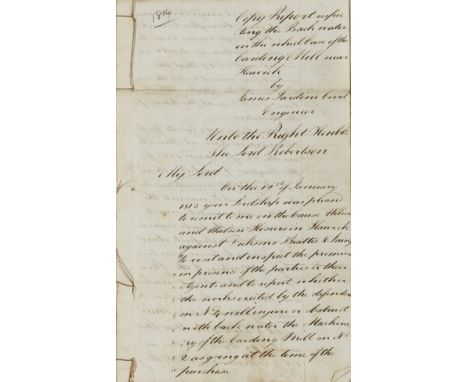 1844
Copy Report respec
ting the Back water
on the wheel Race of the
Carding Mill near
Hawick
by
James Jardine Civil
Engineer
Unto the Right Honble
The Lord Robertson
My Lord
On the 18th of January
your Lordship was please
to remit to me in the Cause Wilson
and Watson Hosiers in Hawick
against Dicksons &
to visit and inspect the premises
in presence of the parties or their
Agents and to report whether
the works erected by the defenders
on No 4 will injure or obstruct
with back water the Machine
ry of the Carding Mill on No
2 as going at the time of the
purchase